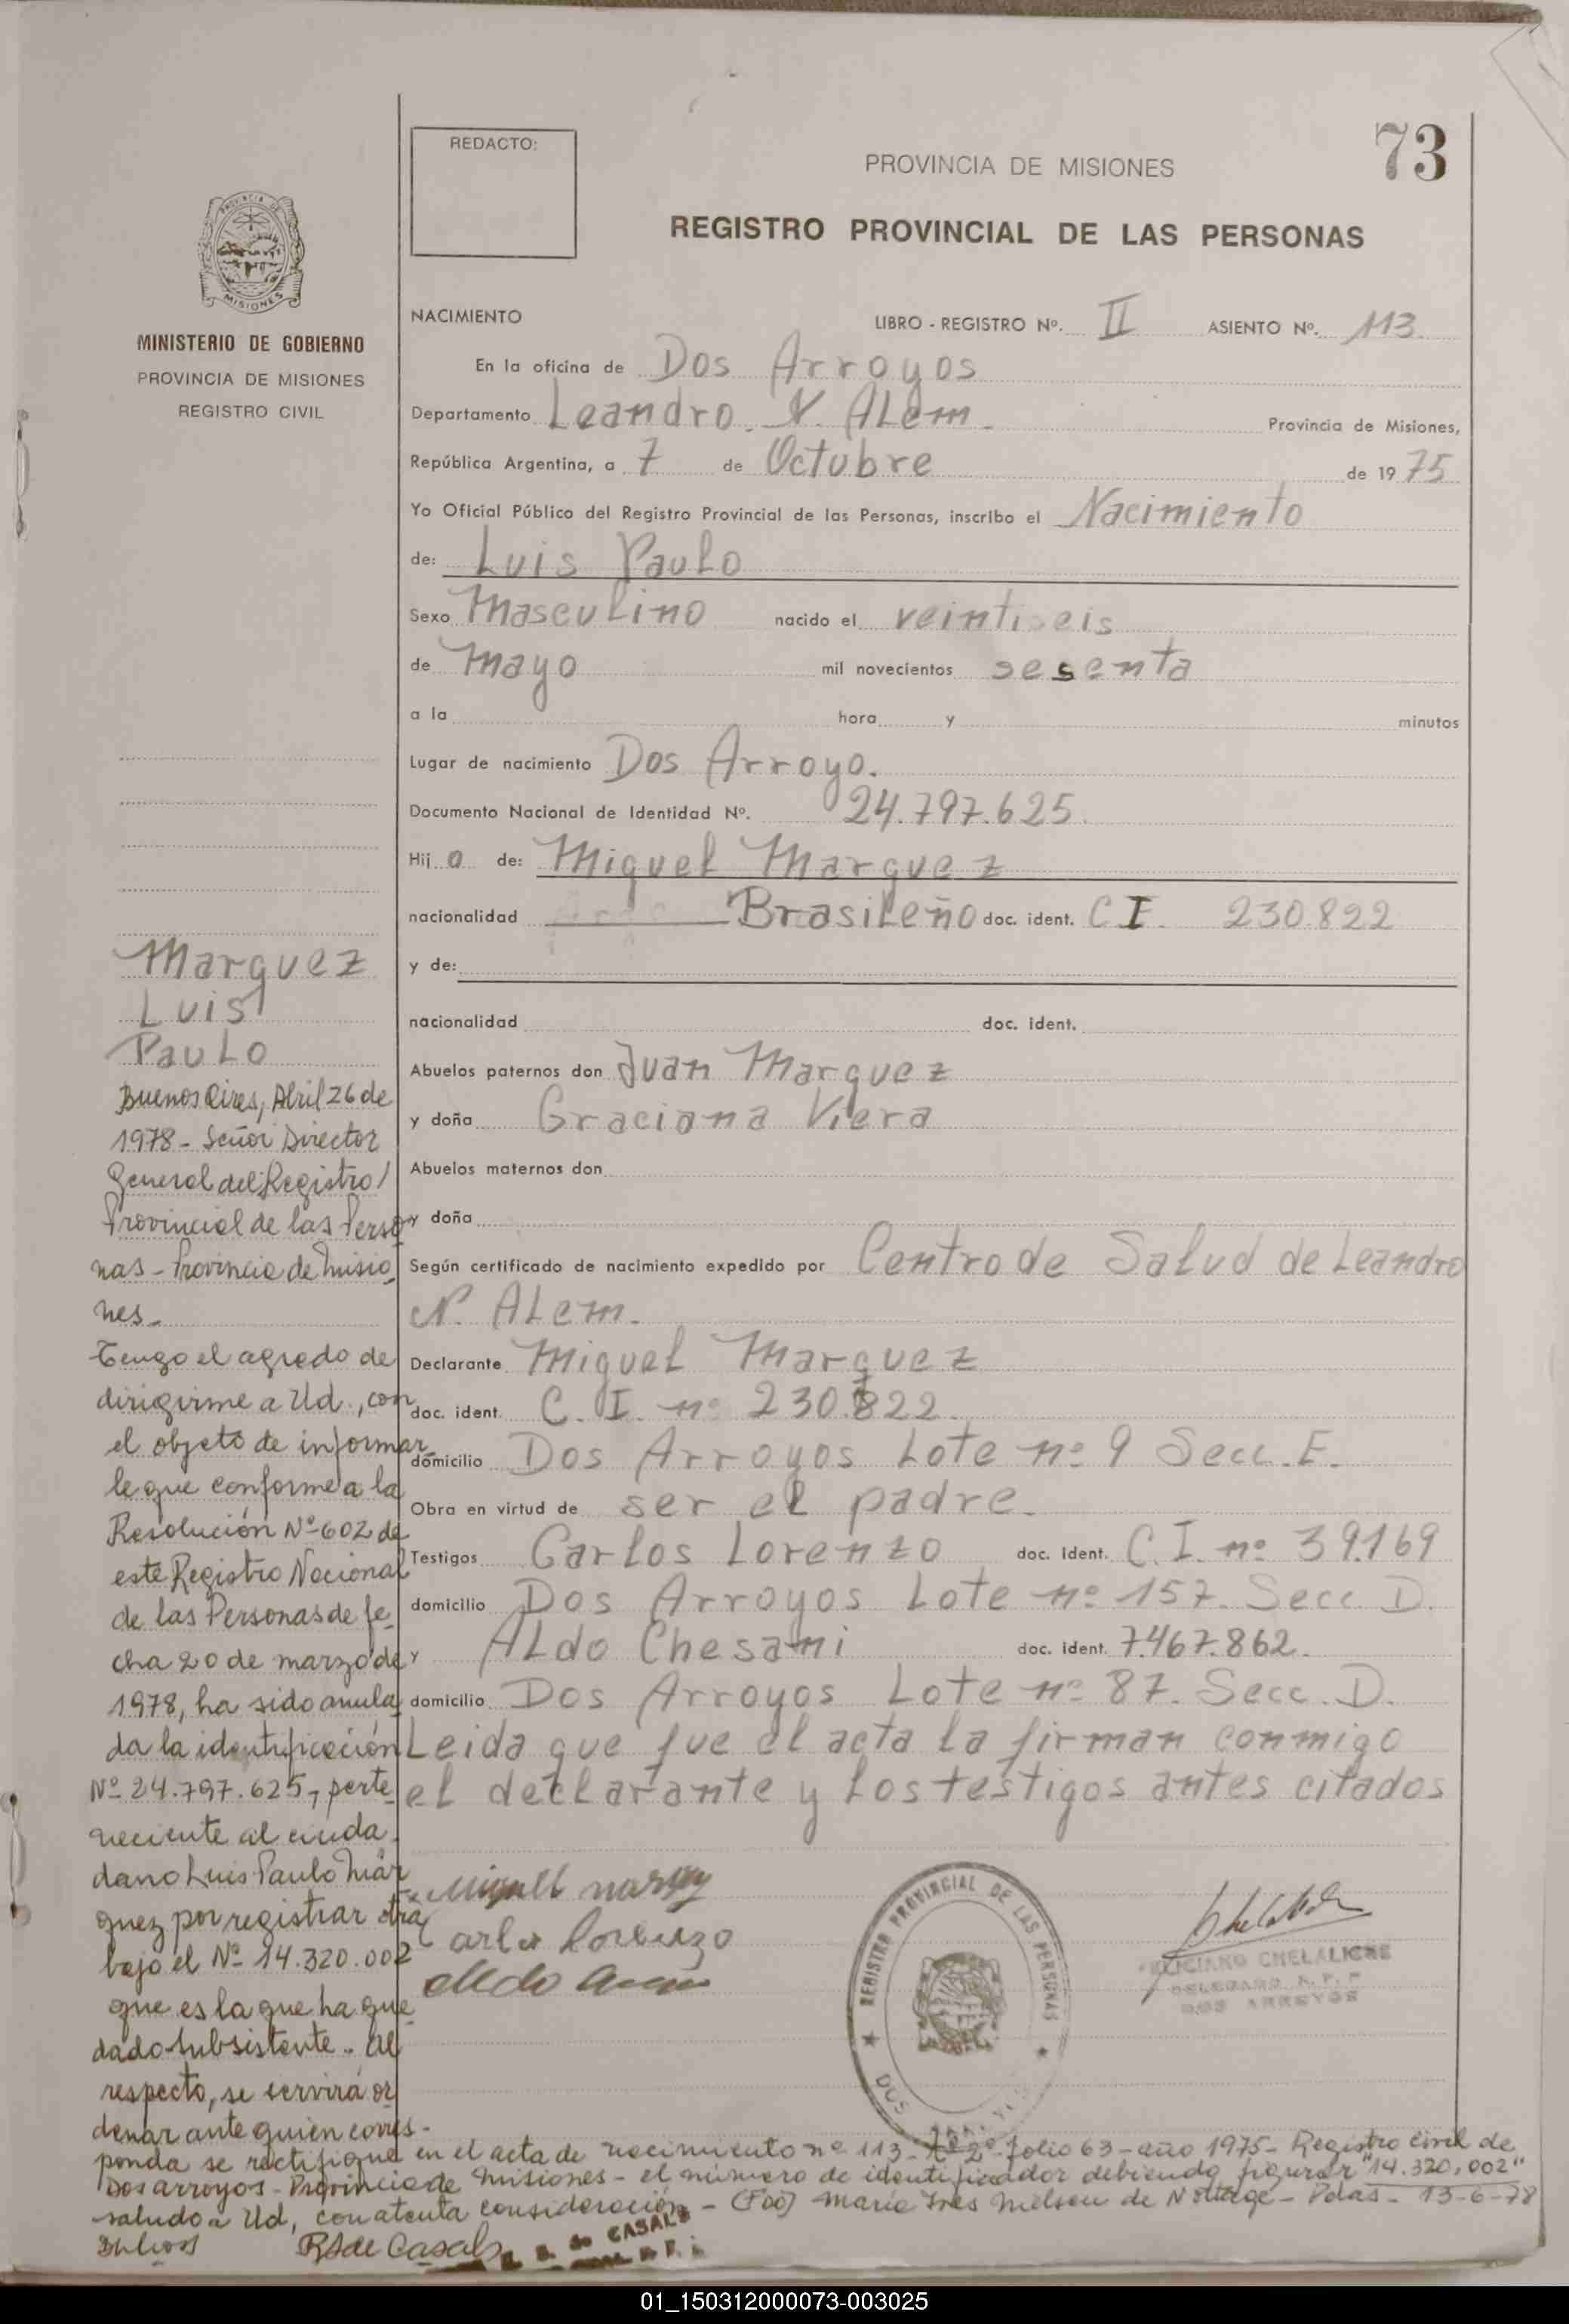 73
REDACTO:
PROVINCIA DE MISIONES
REGISTRO PROVINCIAL DE LAS PERSONAS
PROVINCIA DE
MISIONES
MINISTERIO DE GOBIERNO
PROVINCIA DE MISIONES
REGISTRO CIVIL
NACIMIENTO
LIBRO - REGISTRO Nº. II ASIENTO Nº. 113
En la oficina de Dos Arroyos
Departamento Leandro. N. ALem. Provincia de Misiones,
República Argentina, a 7 de Octubre de 19 75
Yo Oficial Público del Registro Provincial de las Personas, inscribo el Nacimiento
de: Luis Paulo
Sexo Masculino nacido el veintiseis
de Mayo mil novecientos sesenta
a la hora y minutos
Lugar de nacimiento Dos Arroyo.
Documento Nacional de Identidad Nº. 24.797.625.
Hij o de: Miguel Marquez
nacionalidad Brasileño doc. ident. C I. 230.822
y de:
nacionalidad doc. ident.
Abuelos paternos don Juan Marquez
y doña Graciana Viera
Abuelos maternos don
y doña
Según certificado de nacimiento expedido por Centro de Salud de Leandro
N. ALem.
Declarante Miguel Marquez
doc. ident. C. I. nº 230.822.
domicilio Dos Arroyos Lote nº 9 Secc. E.
Obra en virtud de ser el padre.
Testigos Carlos Lorenzo doc. ident. C.I. nº 39.169
domicilio Dos Arroyos Lote nº 157. Secc. D.
y Aldo Chesani doc. ident. 7.467.862.
domicilio Dos Arroyos Lote nº 87. Secc. D.
Leida que fue el acta la firman conmigo
el declarante y los testigos antes citados
Marquez
Luis
Paulo
Buenos Aires, Abril 26 de
1978 - Señor Director
General del Registro/
Provincial de las Perso-
nas - Provincia de Misio-
nes.-
Tengo el agrado de
dirigirme a Ud., con
el objeto de informar-
le que conforme a la
Resolución Nº 602 de
este Registro Nacional
de las Personas de fe-
cha 20 de marzo de
1978, ha sido anula-
da la identificación
Nº 24.797.625, perte-
neciente al ciuda-
dano Luis Paulo Már-
quez por registrar otra
bajo el Nº 14.320.002
que es la que ha que-
dado subsistente. Al
respecto, se servirá or-
denar ante quien corres-
ponda se rectifique en el acta de nacimiento nº 113 - Tº 2º - folio 63 - año 1975 - Registro Civil de
Dos Arroyos - Provincia de Misiones - el número de identificador debiendo figurar "14.320.002"
saludo a Ud, con atenta consideración - (Fdo) María Inés Nielsen de Nottage - Pdas - 13-6-78
Miguel Marquez
Carlos Lorenzo
Aldo
REGISTRO PROVINCIAL DE LAS PERSONAS
DOS
FELICIANO CHELALICHE
DELEGADO R. P. P.
DOS ARROYOS
R S de Casals
de CASALS
01_150312000073-003025